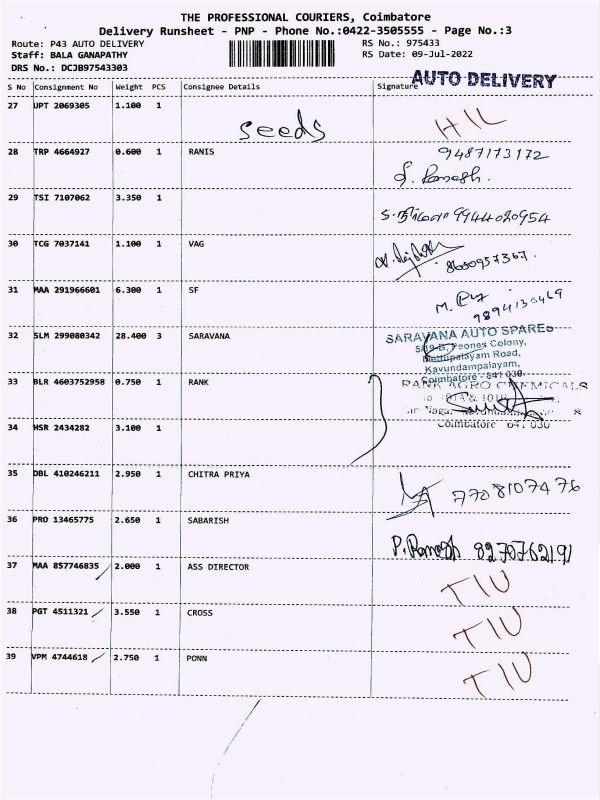 THE PROFESSIONAL COURIERS, Coimbatore
Delivery Runsheet - PNP - Phone No.:0422-3505555 - Page No.:3
Route: P43 AUTO DELIVERY
Staff: BALA GANAPATHY
DRS No.: DCJB97543303
RS No.: 975433
RS Date: 09-Jul-2022
AUTO DELIVERY
S No Consignment No Weight PCS Consignee Details Signature
27 UPT 2069305 1.100 1 seeds HIL
28 TRP 4664927 0.600 1 RANIS 9487173172
S. Ramesh.
29 TSI 7107062 3.350 1 9944020954
30 TCG 7037141 1.100 1 VAG 8680957367.
31 MAA 291966601 6.300 1 SF M.
9894130469
32 SLM 299080342 28.400 3 SARAVANA SARAVANA AUTO SPARES
Peones Colony,
Mettupalayam Road,
Kavundampalayam,
Coimbatore - 641 030.
33 BLR 4603752958 0.750 1 RANK RANK AGRO CHEMICALS
34 HSR 2434282 3.100 1 Coimbatore 641 030
35 DBL 410246211 2.950 1 CHITRA PRIYA 7708107476
36 PRO 13465775 2.650 1 SABARISH P. Ramesh 8270762191
37 MAA 857746835 2.000 1 ASS DIRECTOR TIU
38 PGT 4511321 3.550 1 CROSS TIU
39 VPM 4744618 2.750 1 PONN TIU